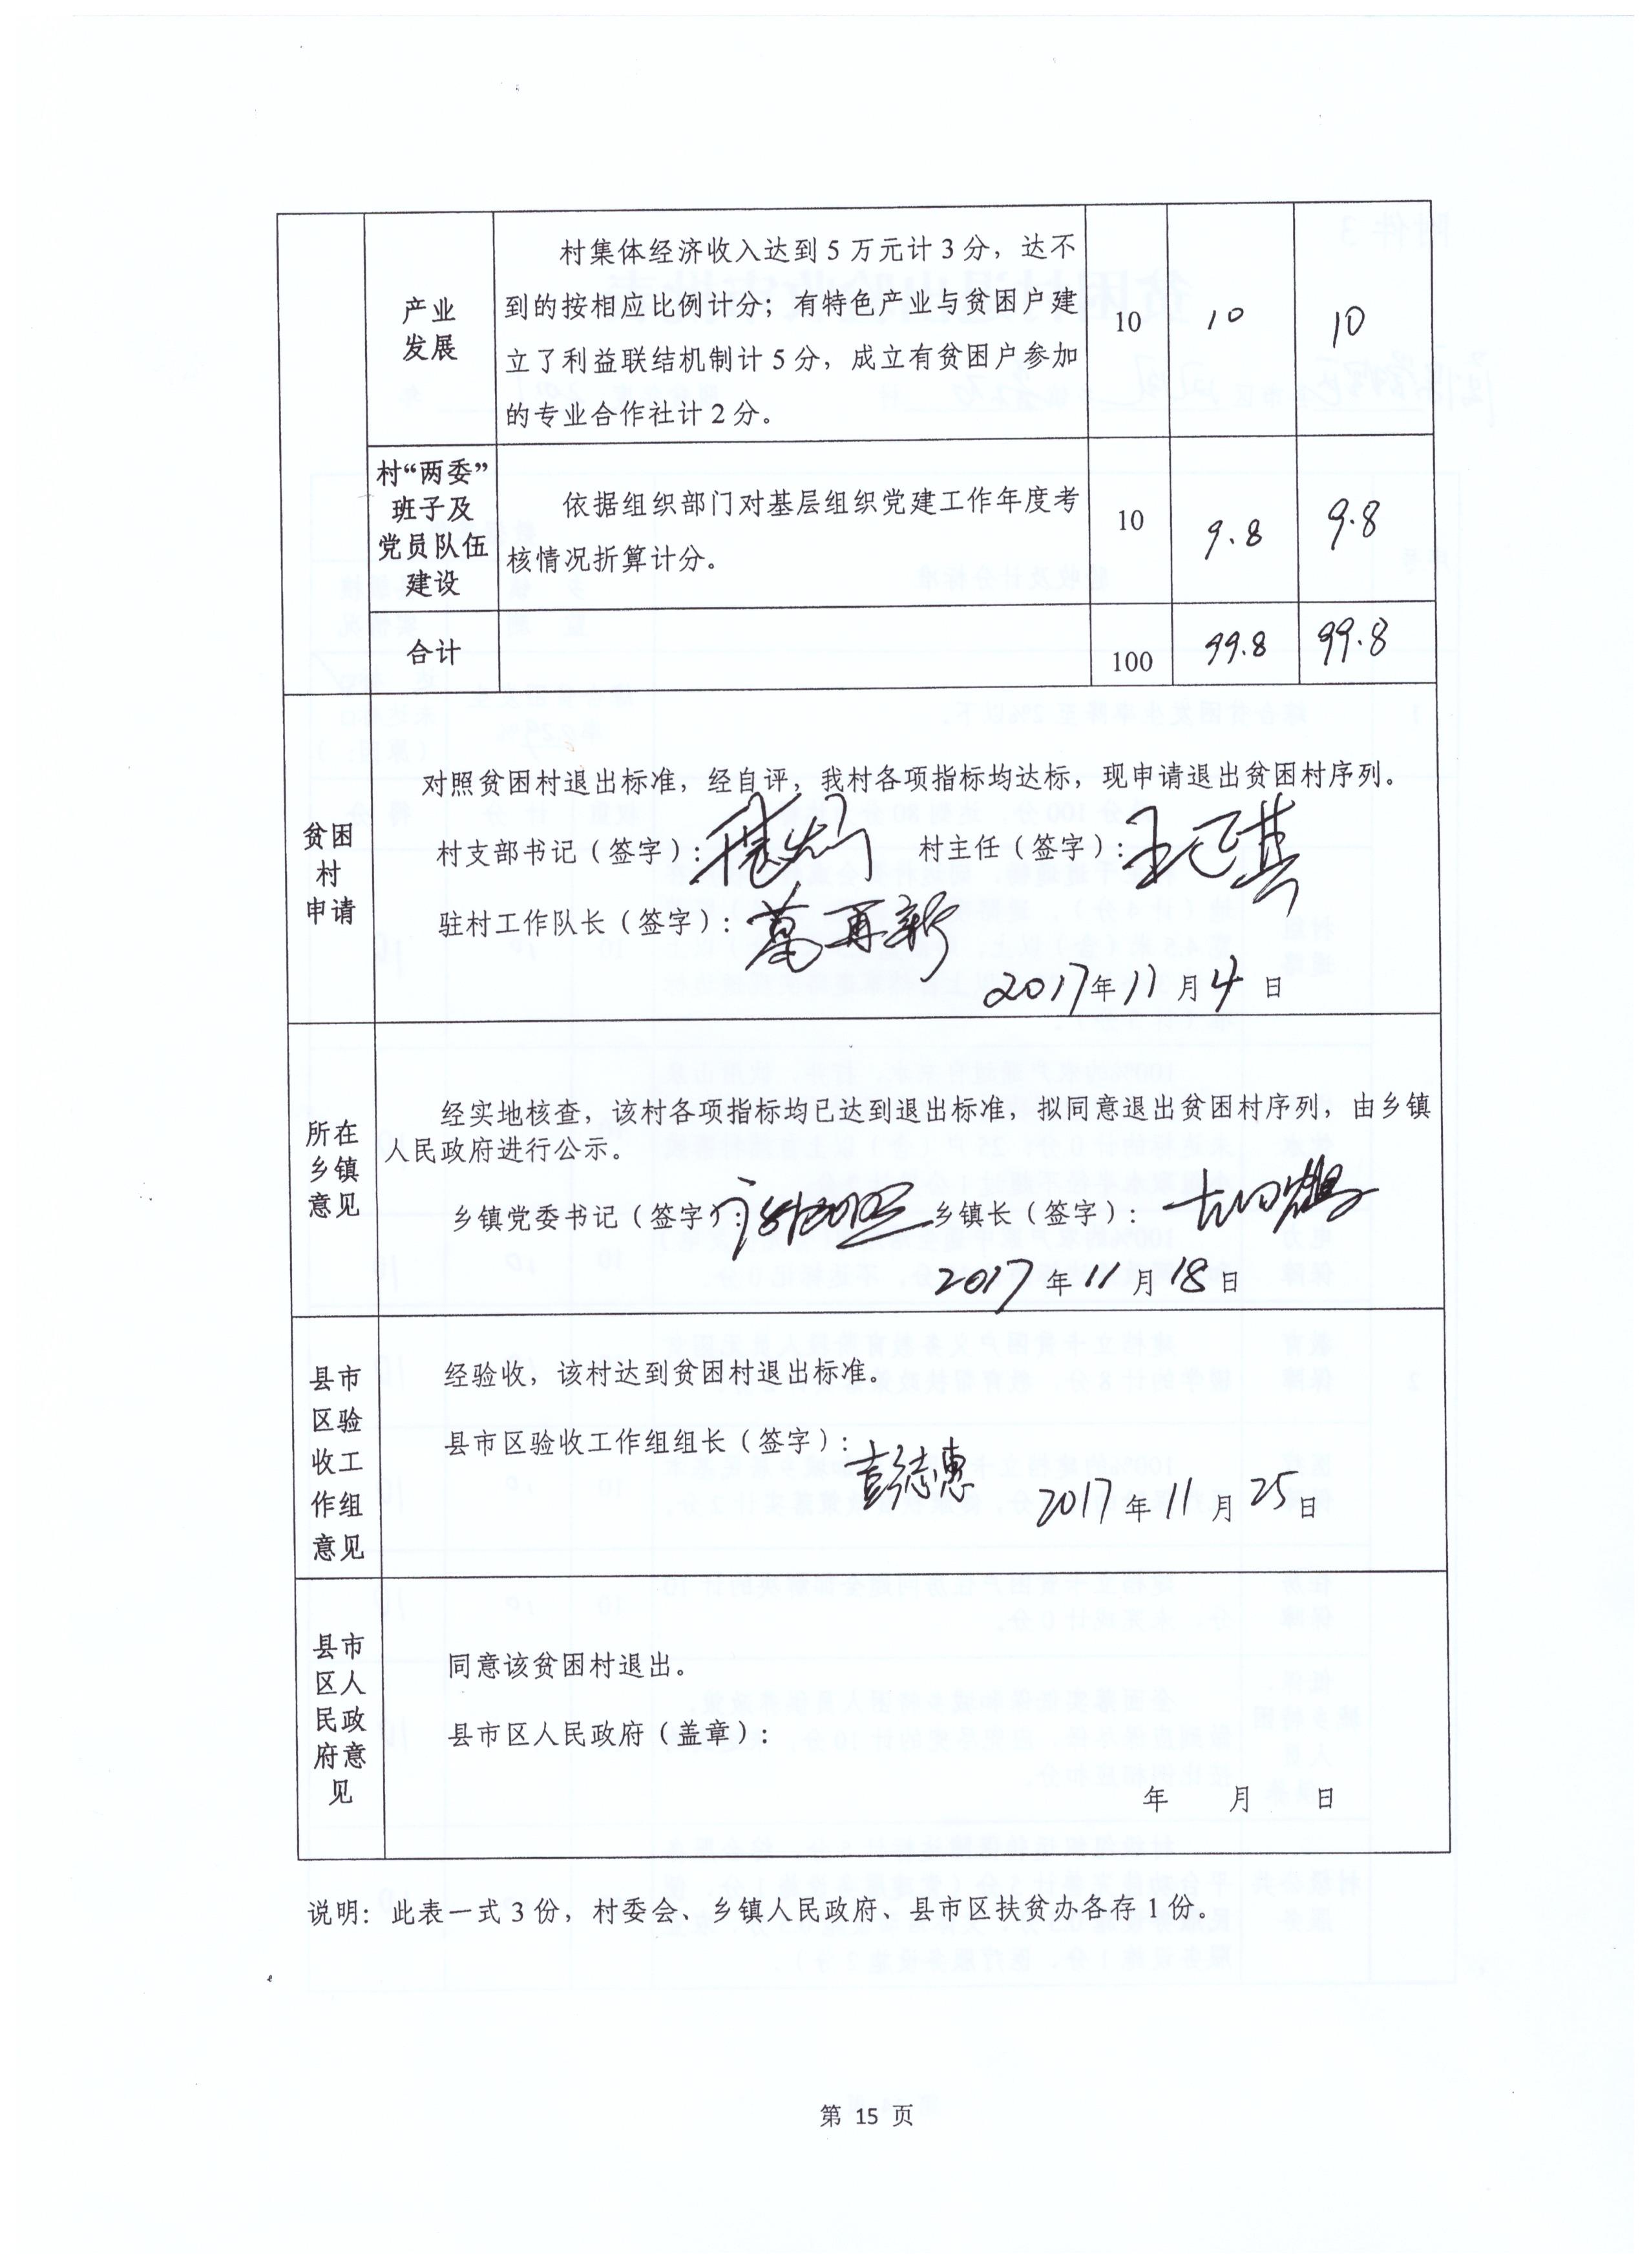 产业
发展
村集体经济收入达到5万元计3分，达不
到的按相应比例计分；有特色产业与贫困户建
立了利益联结机制计5分，成立有贫困户参加
的专业合作社计2分。
10 10 10
村“两委”
班子及
党员队伍
建设
依据组织部门对基层组织党建工作年度考
核情况折算计分。
10 9.8 9.8
合计 100 99.8 99.8
贫困
村
申请
对照贫困村退出标准，经自评，我村各项指标均达标，现申请退出贫困村序列。
村支部书记（签字）： 村主任（签字）：
驻村工作队长（签字）：
2017年11月4日
所在
乡镇
意见
经实地核查，该村各项指标均已达到退出标准，拟同意退出贫困村序列，由乡镇
人民政府进行公示。
乡镇党委书记（签字）： 乡镇长（签字）：
2017年11月18日
县市
区验
收工
作组
意见
经验收，该村达到贫困村退出标准。
县市区验收工作组组长（签字）：彭志惠
2017年11月25日
县市
区人
民政
府意
见
同意该贫困村退出。
县市区人民政府（盖章）：
年 月 日
说明：此表一式3份，村委会、乡镇人民政府、县市区扶贫办各存1份。
第 15 页